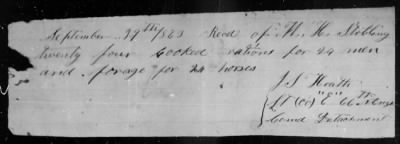 September 29th 1863 Recd of W. H. Stebling
twenty four Cooked rations for 24 men
and forage for 24 horses
J. J. Heath
Lt Co "E" 66th
Comd Detachment